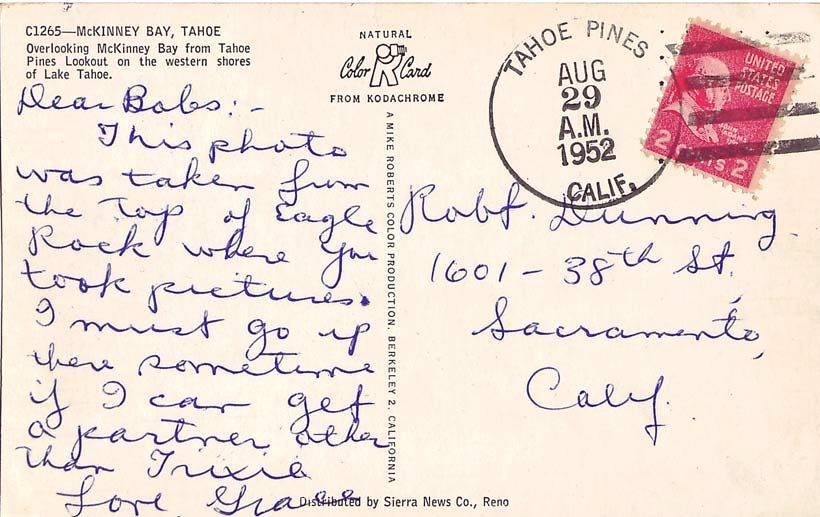 C1265—McKINNEY BAY, TAHOE
Overlooking McKinney Bay from Tahoe
Pines Lookout on the western shores
of Lake Tahoe.
Dear Bobs:-
This photo
was taken from
the Top of Eagle
Rock where you
took pictures.
I must go up
there sometime
if I can get
a partner other
than Trixie
Love, Grace
NATURAL
Color Card
FROM KODACHROME
A MIKE ROBERTS COLOR PRODUCTION. BERKELEY 2, CALIFORNIA
TAHOE PINES
AUG
29
A.M.
1952
CALIF.
UNITED
STATES
POSTAGE
2 CENTS 2
Robt. Dunning
1601 - 38th St.
Sacramento,
Calif.
Distributed by Sierra News Co., Reno